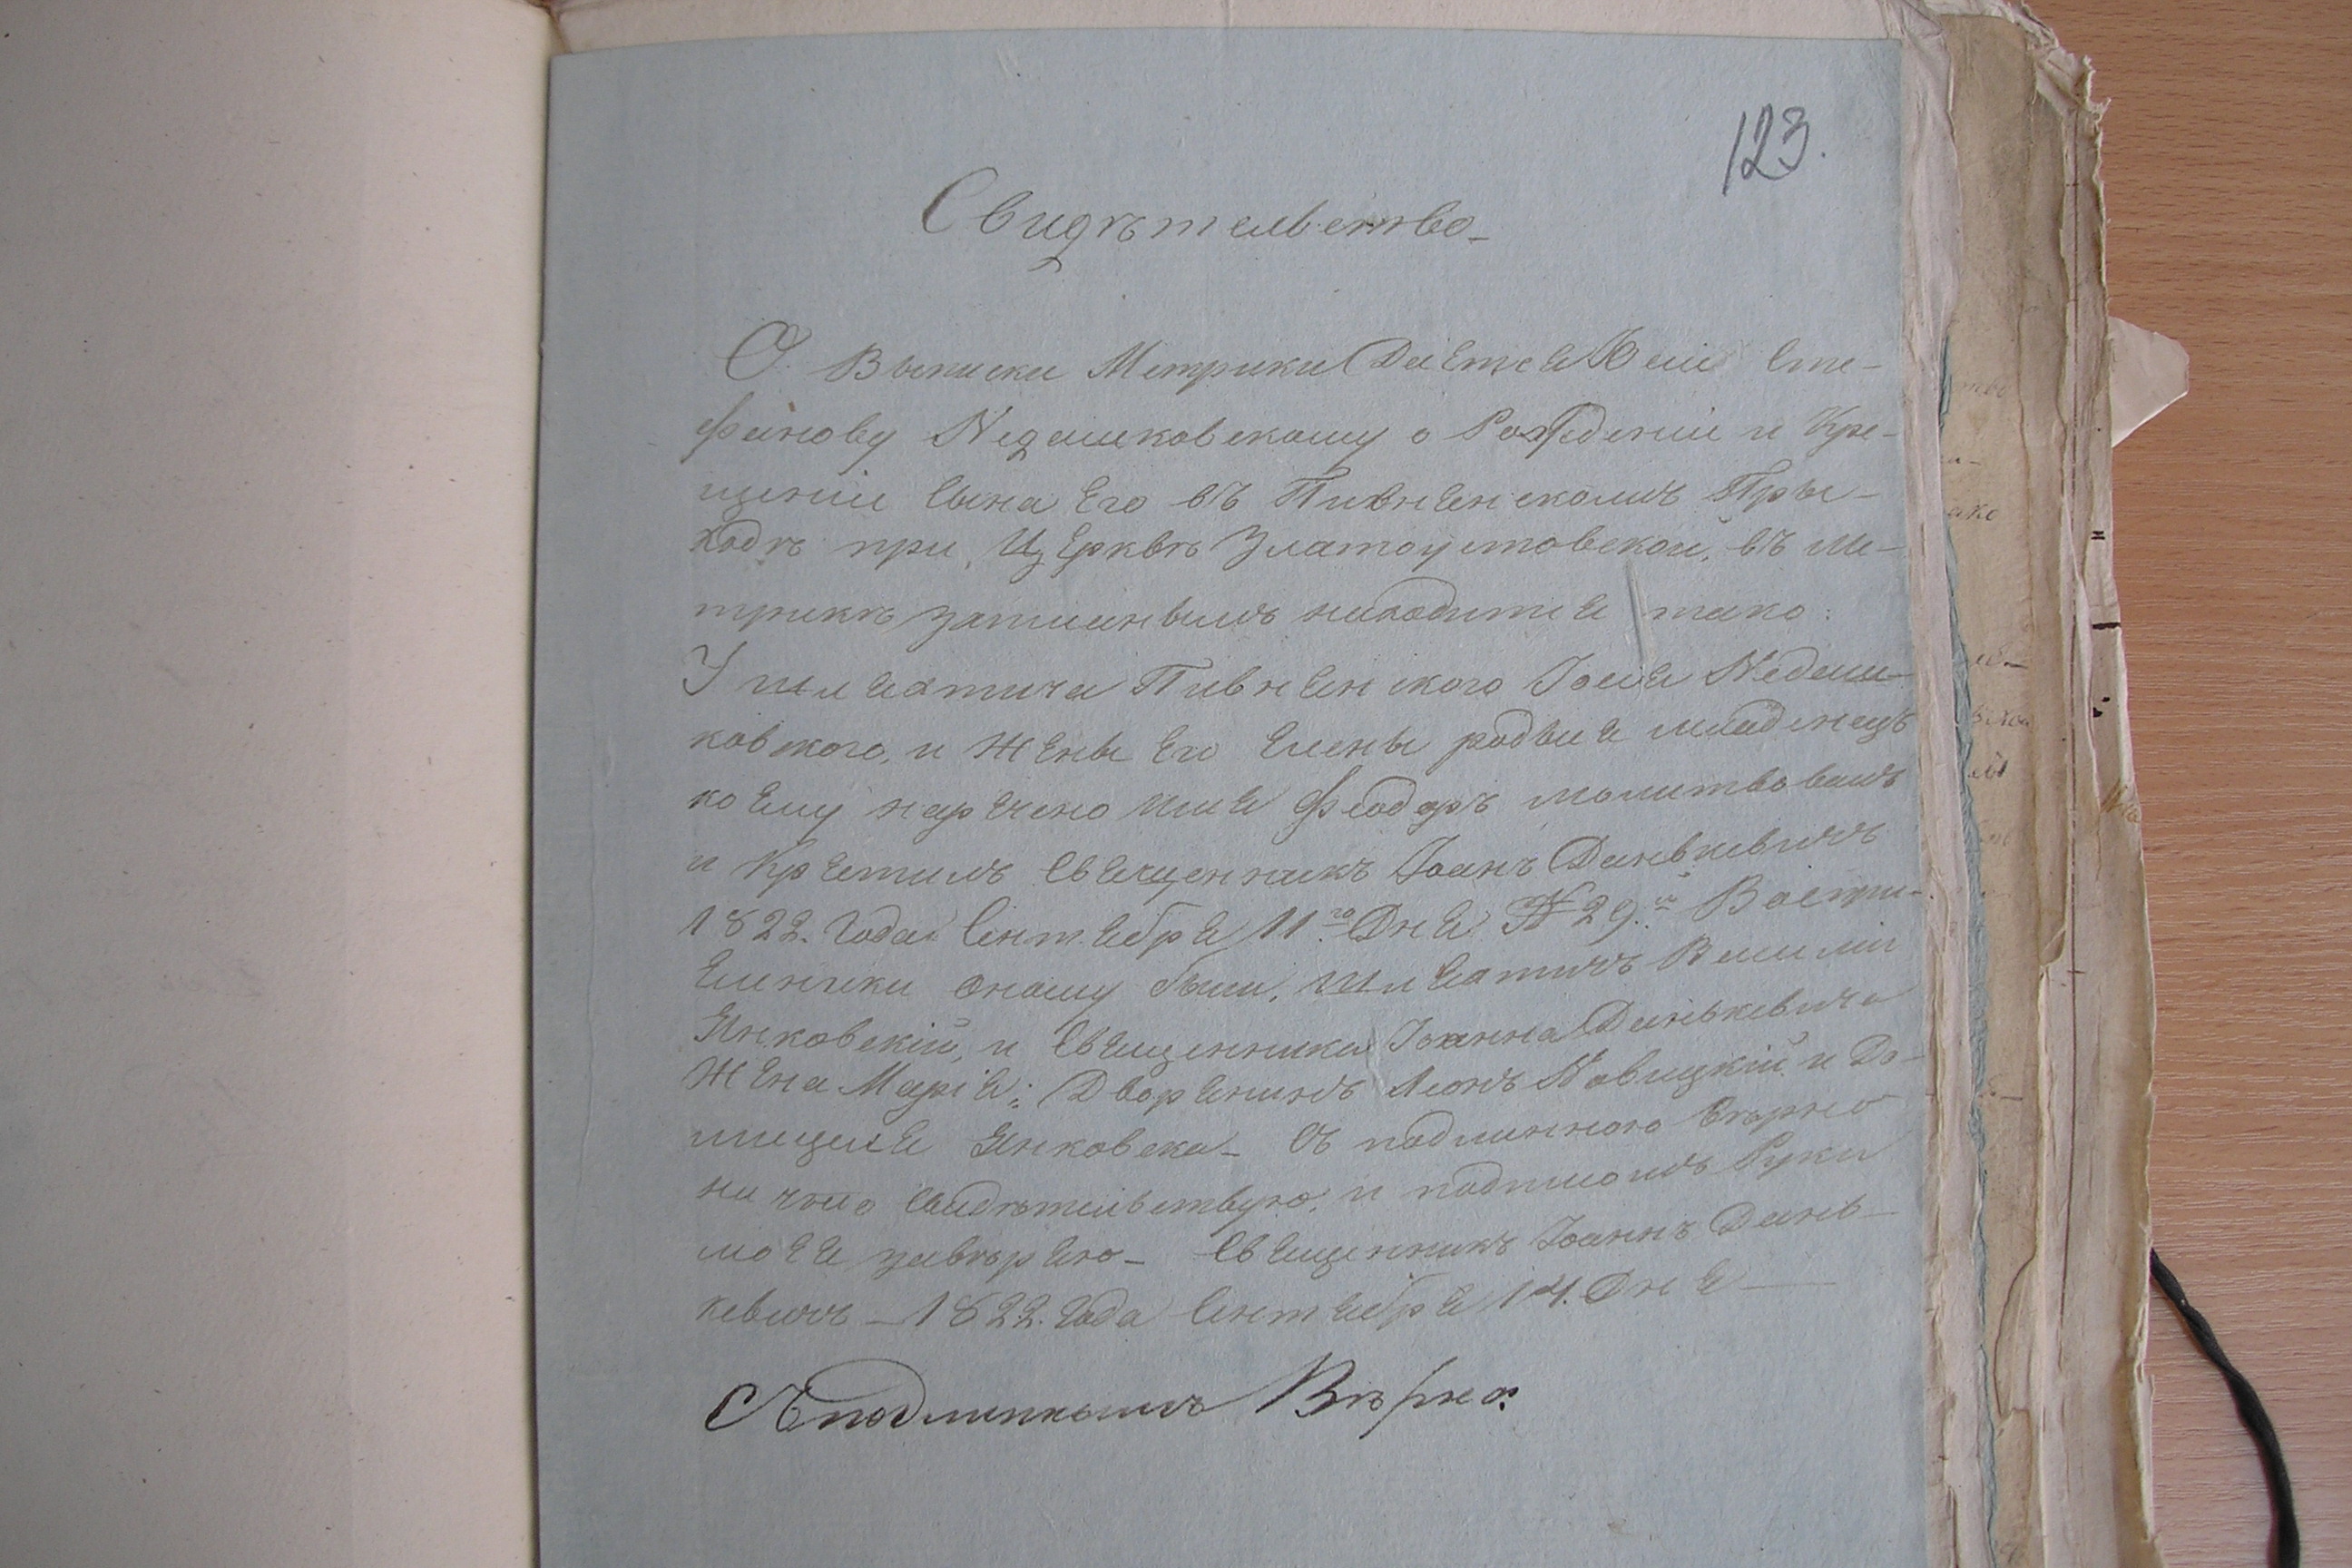 123.
Свидѣтельство
О Выписки Метрики Дается Юсiю Сте-
фанову Недашковскому о Рождении и Кре-
щении Сына Его въ Пивненскомъ При-
ходѣ при Церквѣ Златоустовской, въ ме-
трикѣ записанымъ находится тако:
У шляхтича Пивненского Iосiя Недаш-
ковского, и жены Его Елены родыся младенецъ
коему наречено имя Феодоръ молитвовалъ
и крестилъ Священникъ Iоанъ Данькевичъ
1822. Года Сентября 11го Дня № 29.й Воспри-
емники оному были, шляхтичъ Василiй
Янковскiй, и Священника Iоанна Данькевича
жена Марiя; Дворянинъ Леонъ Новицкiй и До-
мицеля Янковска Съ подлинного вѣрно
на чомъ Свидѣтельствую, и подписомъ Руки
моея завѣряю Священникъ Iоаннъ Дань-
кевичъ 1822. Года Сентября 14. Дня
Съ подлиннымъ Вѣрно: